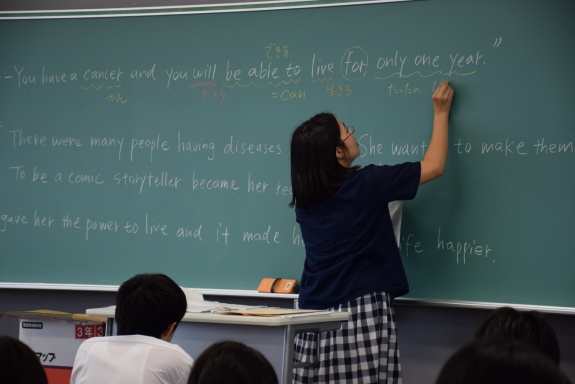 できる
--You have a cancer and you will be able to live for only one year."
がん = can 生きる たった
There were many people having diseases She want to make them
To be a comic storyteller became her
gave her the power to live and it made life happier.
3年 3
マップ